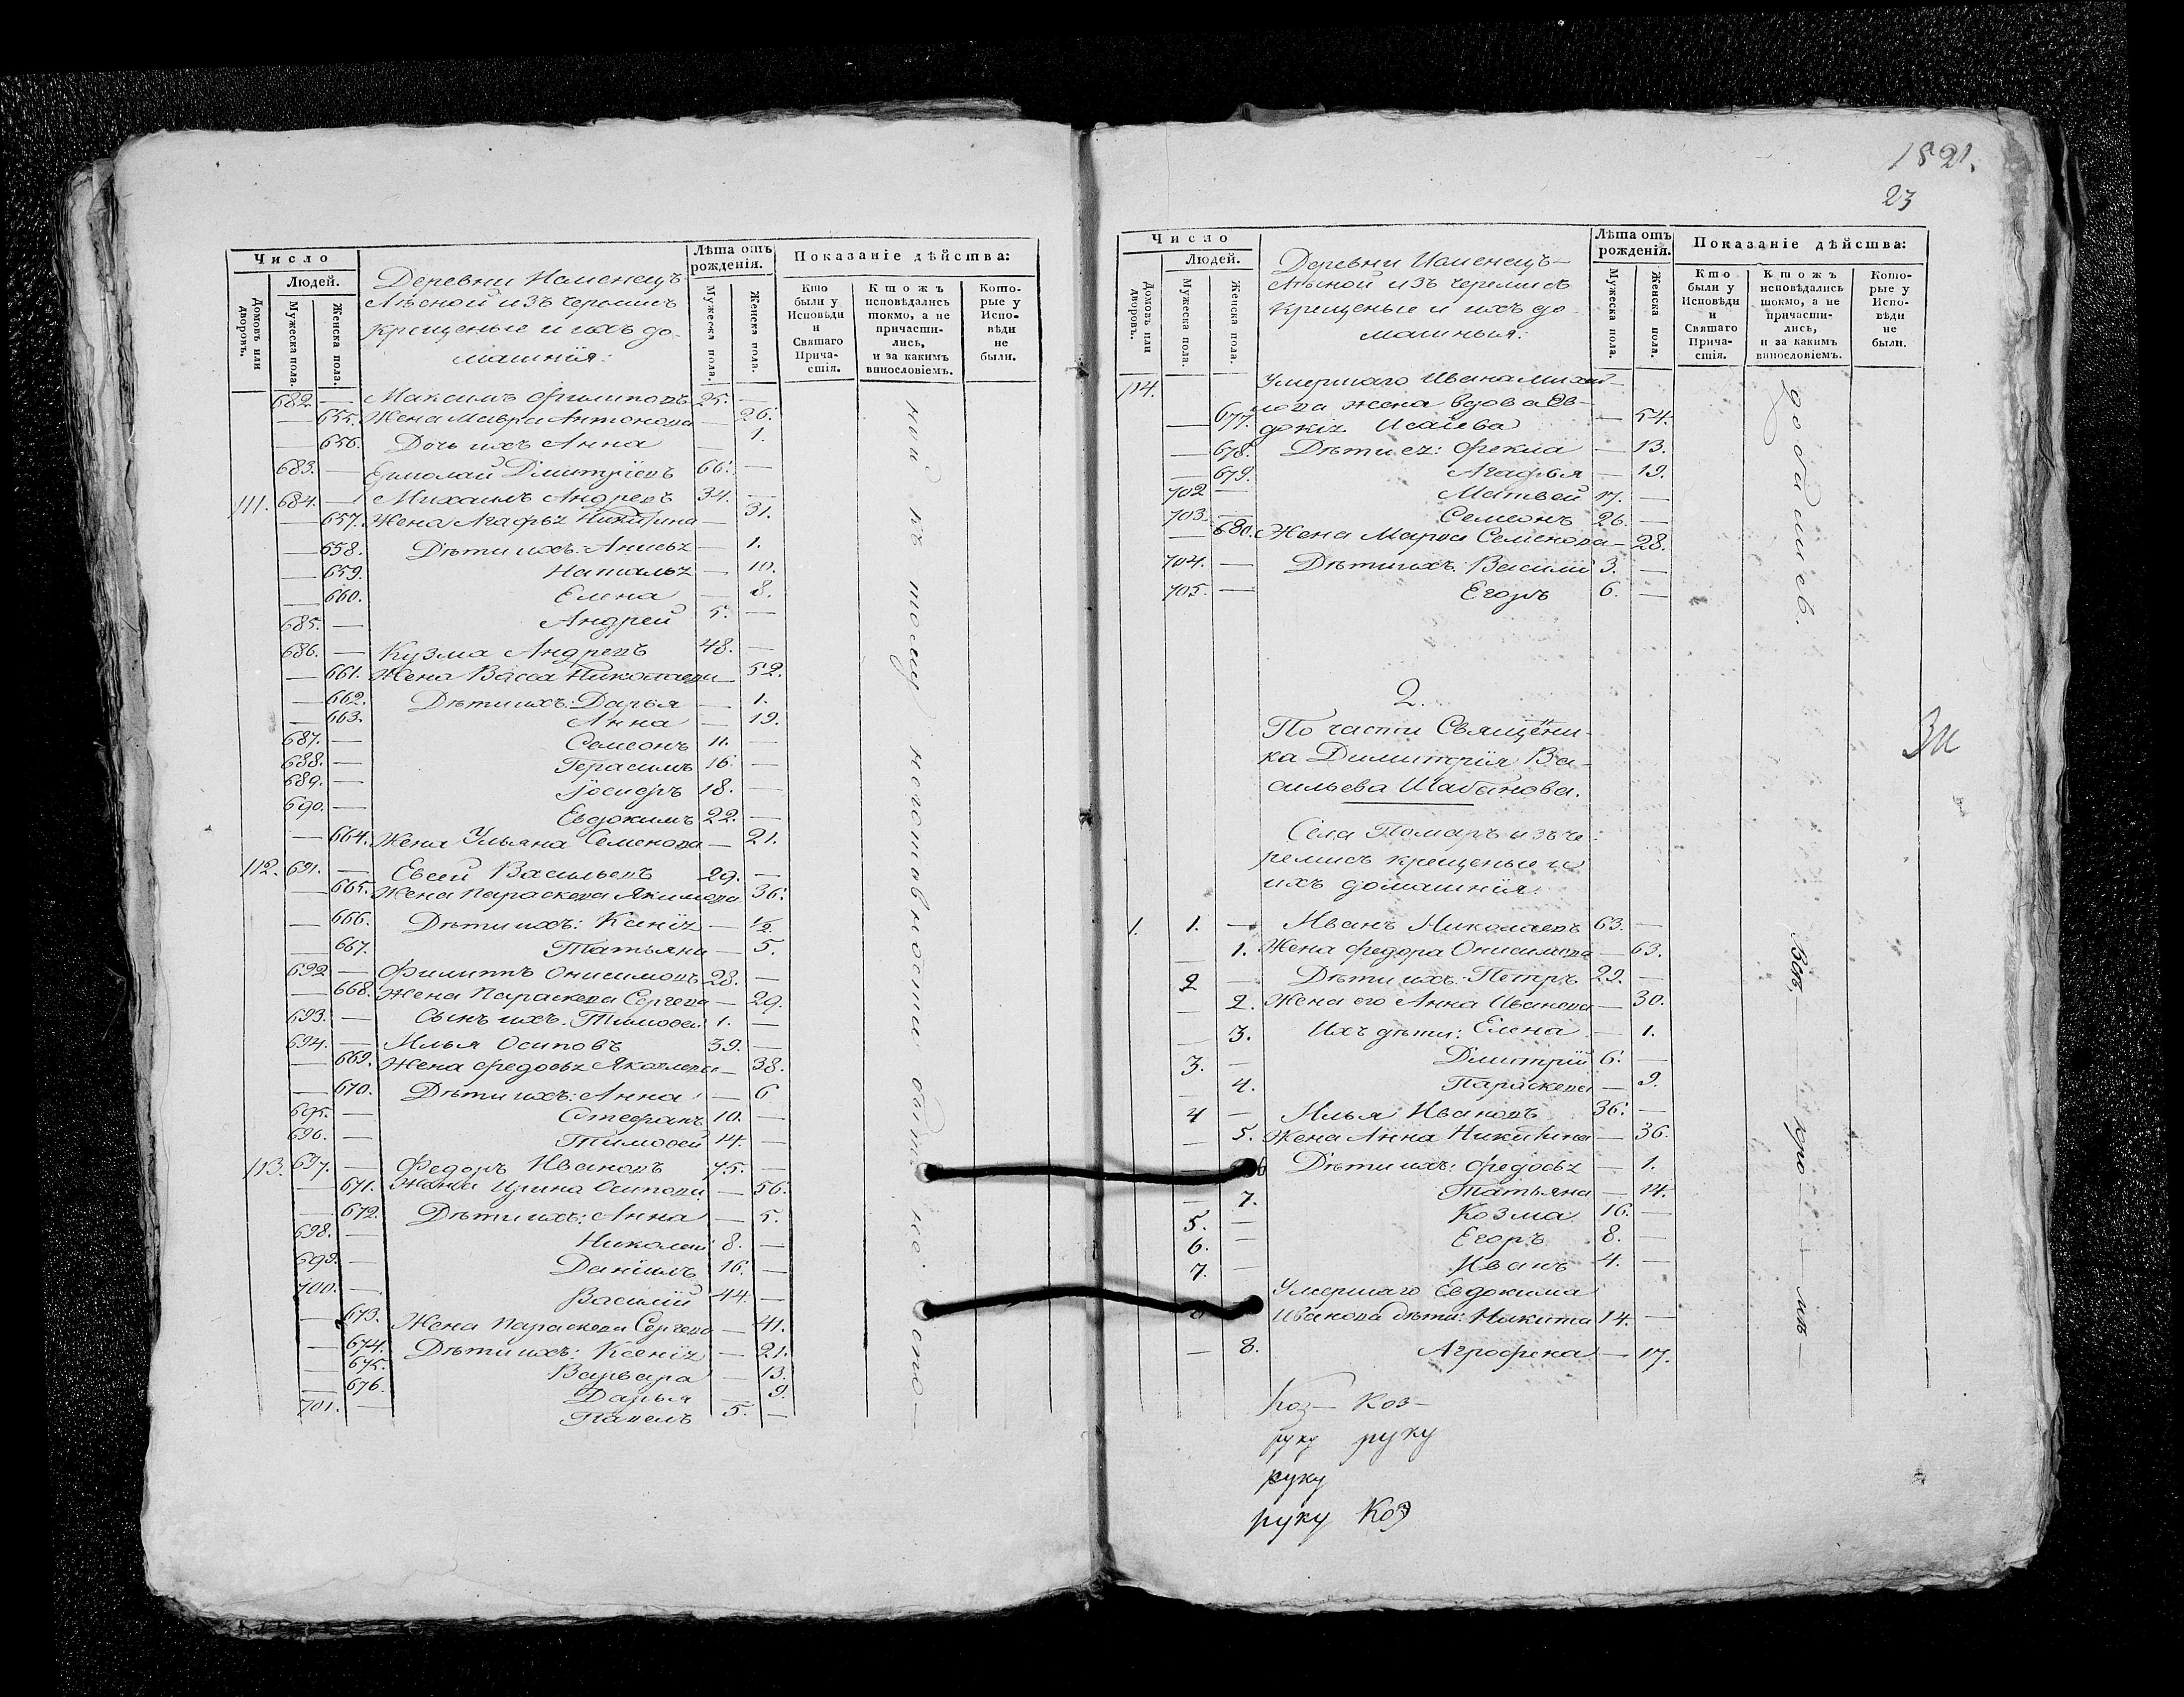 Число
Людей.
Домовъ или дворовъ.
Мужеска пола.
Женска пола.
Деревни Исменецъ
Лѣсной изъ черемисъ
крещеные и ихъ до-
машнія:
Лѣта отъ рожденія.
Мужеска пола.
Женска пола.
Показаніе дѣйства:
Кто были у Исповѣди и Святаго Причастія.
Ктожъ исповѣдались токмо, а не причастились, и за какимъ винословіемъ.
Которые у Исповѣди не были.
682. — Максимъ Филиповъ 25. —
— 655. Жена Мавра Антонова — 26.
— 656. Дочь ихъ Анна — 1.
683. — Ермолай Дмитріевъ 66. —
111. 684. — Михаилъ Андревъ 34. —
— 657. Жена Агафья Никитина — 31.
— 658. Дѣти ихъ: Анисья — 1.
— 659. Наталья — 10.
— 660. Елена — 8.
685. — Андрей 5. —
686. — Кузма Андревъ 48. —
— 661. Жена Васса Николаева — 52.
— 662. Дѣти ихъ: Дарья — 1.
— 663. Анна — 19.
687. — Семенъ 11. —
688. — Герасимъ 16. —
689. — Іосифъ 18. —
690. — Евдокимъ 22. —
— 664. Жена Ульяна Семенова — 21.
112. 691. — Евсей Васильевъ 29. —
— 665. Жена Параскева Якимова 36.
— 666. Дѣти ихъ: Ксенія — 1/2.
— 667. Татьяна — 5.
692 — Филиппъ Онисимовъ 28. —
— 668. Жена Параскева Сергева — 29.
693. — Сынъ ихъ: Тимофей 1. —
694. — Илья Осиповъ 39. —
— 669. Жена Федосья Яковлева — 38.
— 670. Дѣти ихъ: Анна — 6
695. — Стефанъ 10. —
696. — Тимофей 14. —
113. 697. — Федоръ Ивановъ 75. —
— 671. Жена Ирина Осипова — 56.
— 672. Дѣти ихъ: Анна — 5.
698. — Николай 8. —
699. — Даніилъ 16. —
700. — Василій 44. —
— 673. Жена Параскева Сергева — 41.
— 674. Дѣти ихъ: Ксенія — 21.
— 675. Варвара — 13.
— 676. Дарья — 9.
701. — Павелъ 5. —
къ тому неготовности
1821.
23
Число
Людей.
Домовъ или дворовъ.
Мужеска пола.
Женска пола.
Деревни Исменецъ-
Лѣсной изъ черемисъ
крещеные и ихъ до-
машныя:
Лѣта отъ рожденія.
Мужеска пола.
Женска пола.
Показаніе дѣйства:
Кто были у Исповѣди и Святаго Причастія.
Ктожъ исповѣдались токмо, а не причастились, и за какимъ винословіемъ.
Которые у Исповѣди не были.
114. Умершаго Ивана Михай-
лова жена вдова Ев-
— 677. докія Исаева — 54.
— 678. Дѣти ея: Фекла — 13.
— 679. Агафья — 19.
702 — Матвей 17. —
703. — Семенъ 26. —
— 680. Жена Марфа Семенова — 28.
704. — Дѣти ихъ: Василій 3. —
705. — Егоръ 6. —
2.
По части Священни-
ка Димитрія Ва-
сильева Шабанова.
Села Помаръ изъ че-
ремисъ крещеные и
ихъ домашнія.
1. 1. — Иванъ Николаевъ 63. —
— 1. Жена Федора Онисимова — 63.
2 — Дѣти ихъ: Петръ 29. —
— 2. Жена его Анна Иванова — 30.
— 3. Ихъ дѣти: Елена — 1.
3. — Дмитрій 6. —
— 4. Параскева — 9.
4 — Илья Ивановъ 36. —
— 5. Жена Анна Никитина — 36.
— 6 Дѣти ихъ: Федосья — 1.
— 7. Татьяна — 14.
5. — Козма 16. —
6. — Егоръ 8. —
7. — Иванъ 4. —
Умершаго Евдокима
8 Иванова дѣти: Никита 14. —
— 8. Агрофена — 17.
Коз — Коз —
руку руку
руку
руку Коз